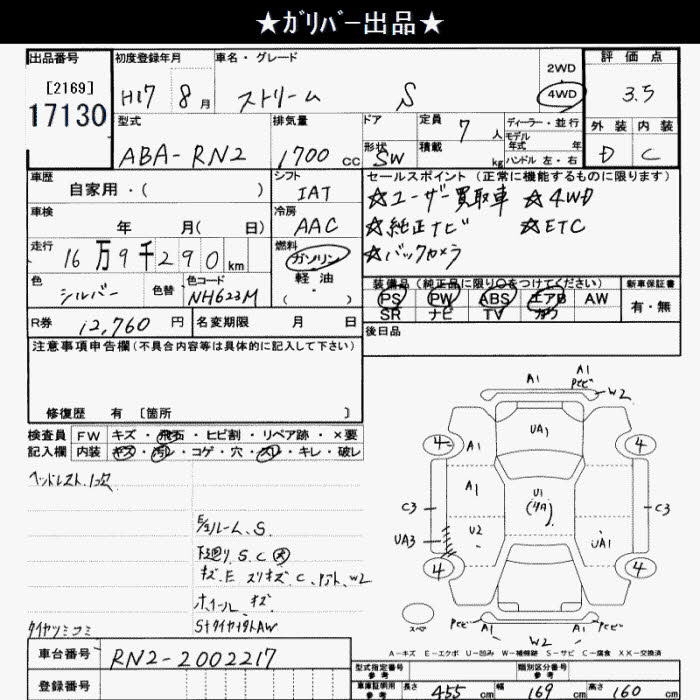 ★ガリバー出品★
出品番号
[2169]
17130
初度登録年月
H17 8月
車名・グレード
ストリーム S
2WD
4WD
評価点
3.5
外装 内装
D C
型式
ABA-RN2
排気量
1700 cc
ドア
形状
SW
定員
7 人
積載
kg
ディーラー・並行
モデル
年式 年
ハンドル 左・右
車歴
自家用・( )
シフト
IAT
車検
年 月( 日)
冷房
AAC
走行
16万9千290km
燃料
ガソリン
軽油
( )
色
シルバー
色替
色コード
NH623M
R券
12,760 円
名変期限 月 日
セールスポイント(正常に機能するものに限ります)
☆ユーザー買取車 ☆4WD
☆純正ナビ ☆ETC
☆バックカメラ
装備品(純正品に限り○をつけてください)
PS PW ABS エアB AW
SR ナビ TV カワ
新車保証書
有・無
後日品
注意事項申告欄(不具合内容等は具体的に記入して下さい)
修復歴 有 [箇所 ]
検査員 FW キズ・飛石・ヒビ割・リペア跡・×要
記入欄 内装 キズ・汚レ・コゲ・穴・スレ・キレ・破レ
ヘッドレスト.
ルーム.S.
下廻り S.C
キズ.E スリキズ C. W2
ホイール キズ
タイヤツミコミ
A1
A1
W2
UA1
4
4
A1
A1
U1
C3
C3
UA3
U2
UA1
4
4
スペア
W2
A-キズ E-エクボ U-凹み W-補修跡 S-サビ C-腐食 XX-交換済
車台番号
RN2-2002217
登録番号
型式指定番号
参考
類別区分番号
参考
車庫証明用
参考
長さ 455 cm 幅 169 cm 高さ 160 cm